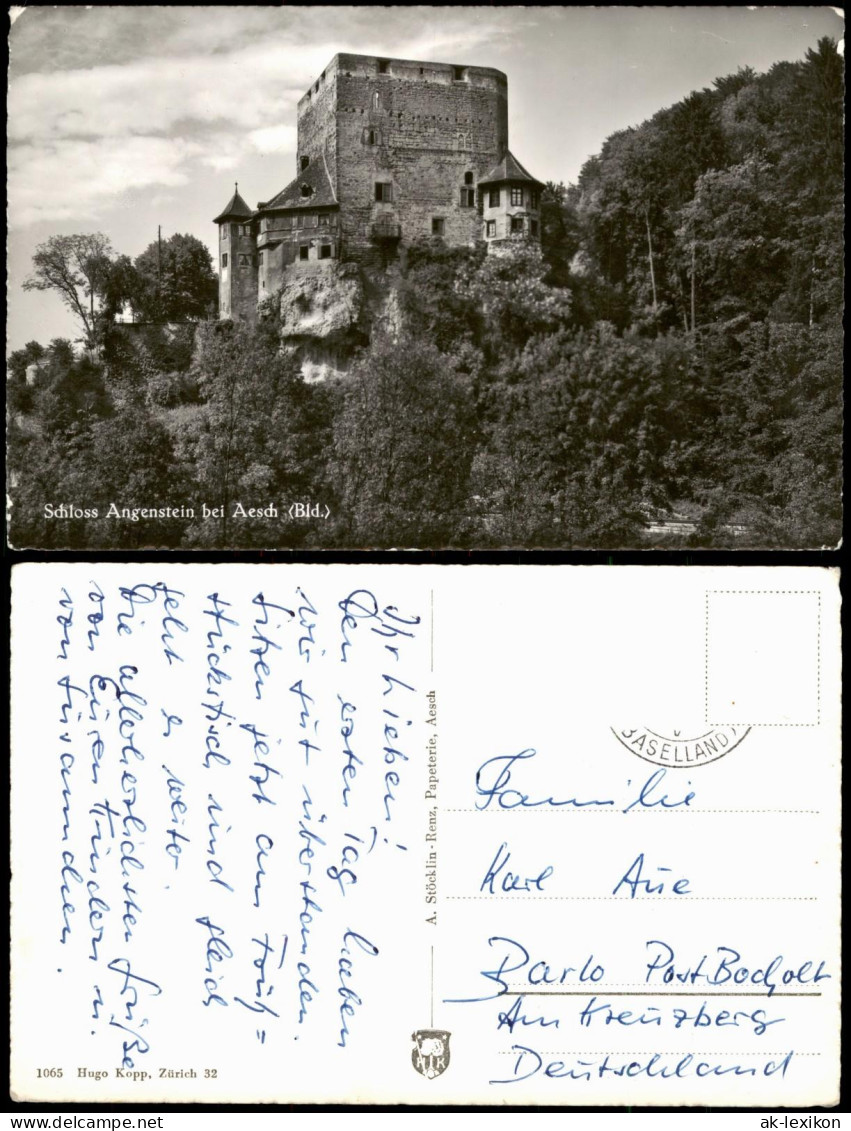 Schloss Angenstein bei Aesch (Bld.)
Ihr Lieben!
Den ersten Tag haben
wir gut überstanden.
Sitzen jetzt am Früh=
stückstisch und gleich
geht es weiter.
Die allerherzlichsten Grüße
von Euren Kindern u.
von
A. Stöcklin-Renz, Papeterie, Aesch
BASELLAND
Familie
Karl Aue
Barlo Post Bocholt
Am Kreuzberg
Deutschland
1065 Hugo Kopp, Zürich 32
K K
ak-lexikon.com